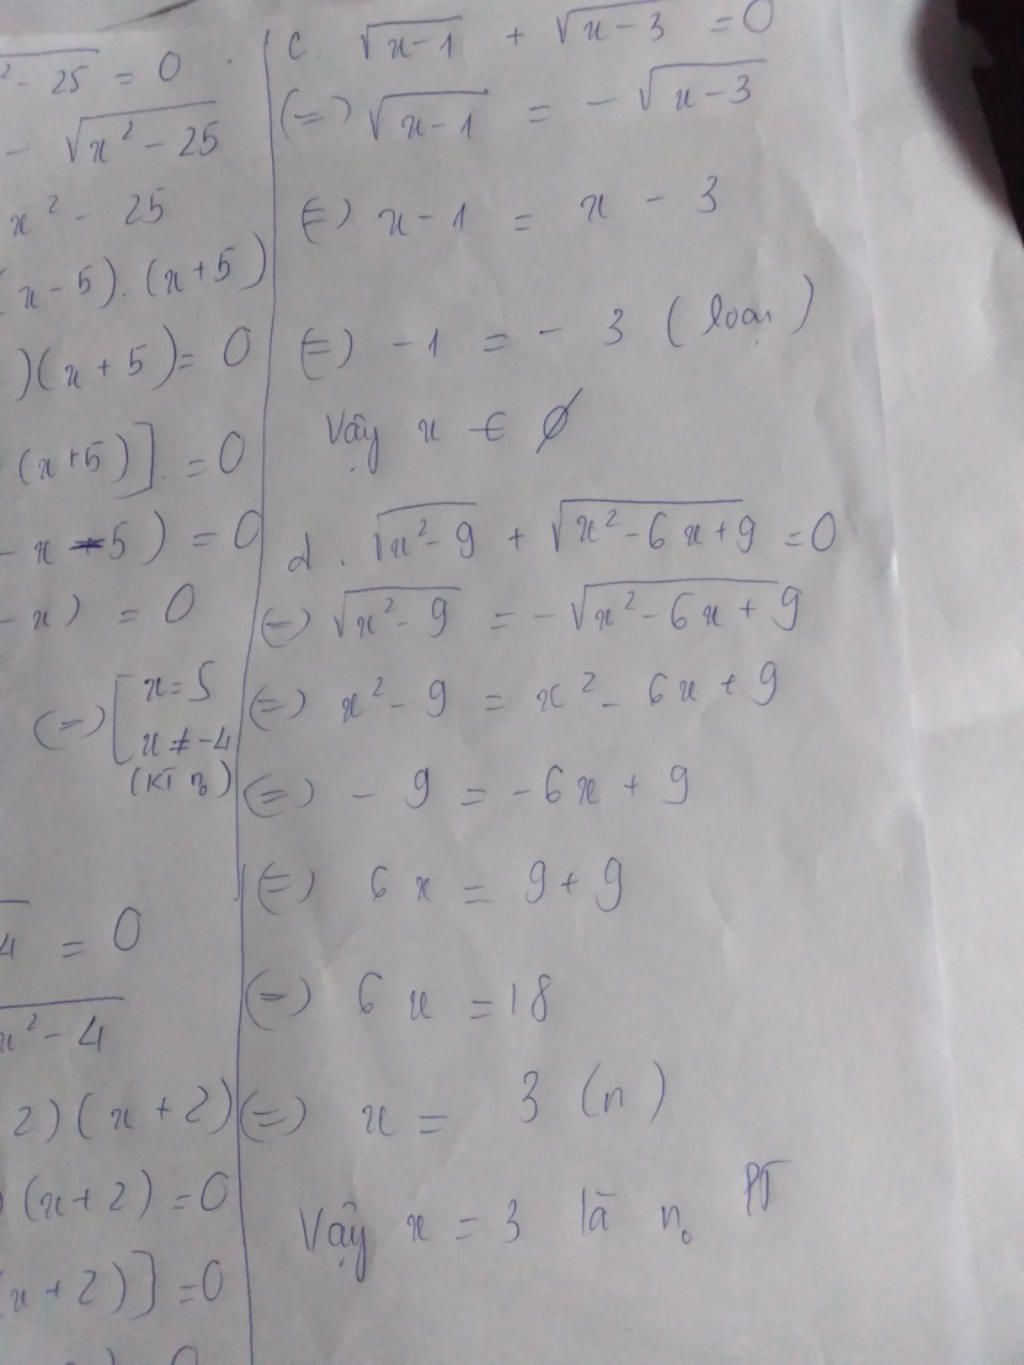 ²-25 = 0
- √x²-25
x² - 25
x-5).(x+5)
)(x+5)=0
(x+5)] = 0
- x 5) = 0
- x) = 0
(=) [ x=5
x≠-4
4 = 0
x²-4
2)(x+2)
(x+2)=0
x+2)]=0
c. √x-1 + √x-3 = 0
(=) √x-1 = - √x-3
(=) x-1 = x - 3
(=) -1 = - 3 (loại)
Vậy x ∈ ∅
d. √x²-9 + √x²-6x+9 = 0
(=) √x²-9 = -√x²-6x+9
(=) x²-9 = x²-6x+9
(=) - 9 = -6x + 9
(=) 6x = 9+9
(=) 6x = 18
(=) x = 3 (n)
Vậy x = 3 là n₀ PT